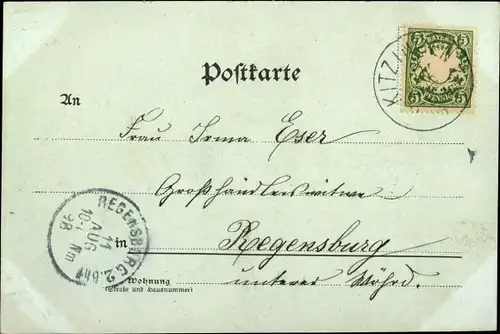 5 BAYERN 5
5 PFENNIG 5
KITZI
Postkarte
An
Frau Irma Eser
Großhändlerswitwe
REGENSBURG 2.
11
AUG
98
in Regensburg
Wohnung
unterer Wöhrd.
(Straße und Hausnummer)